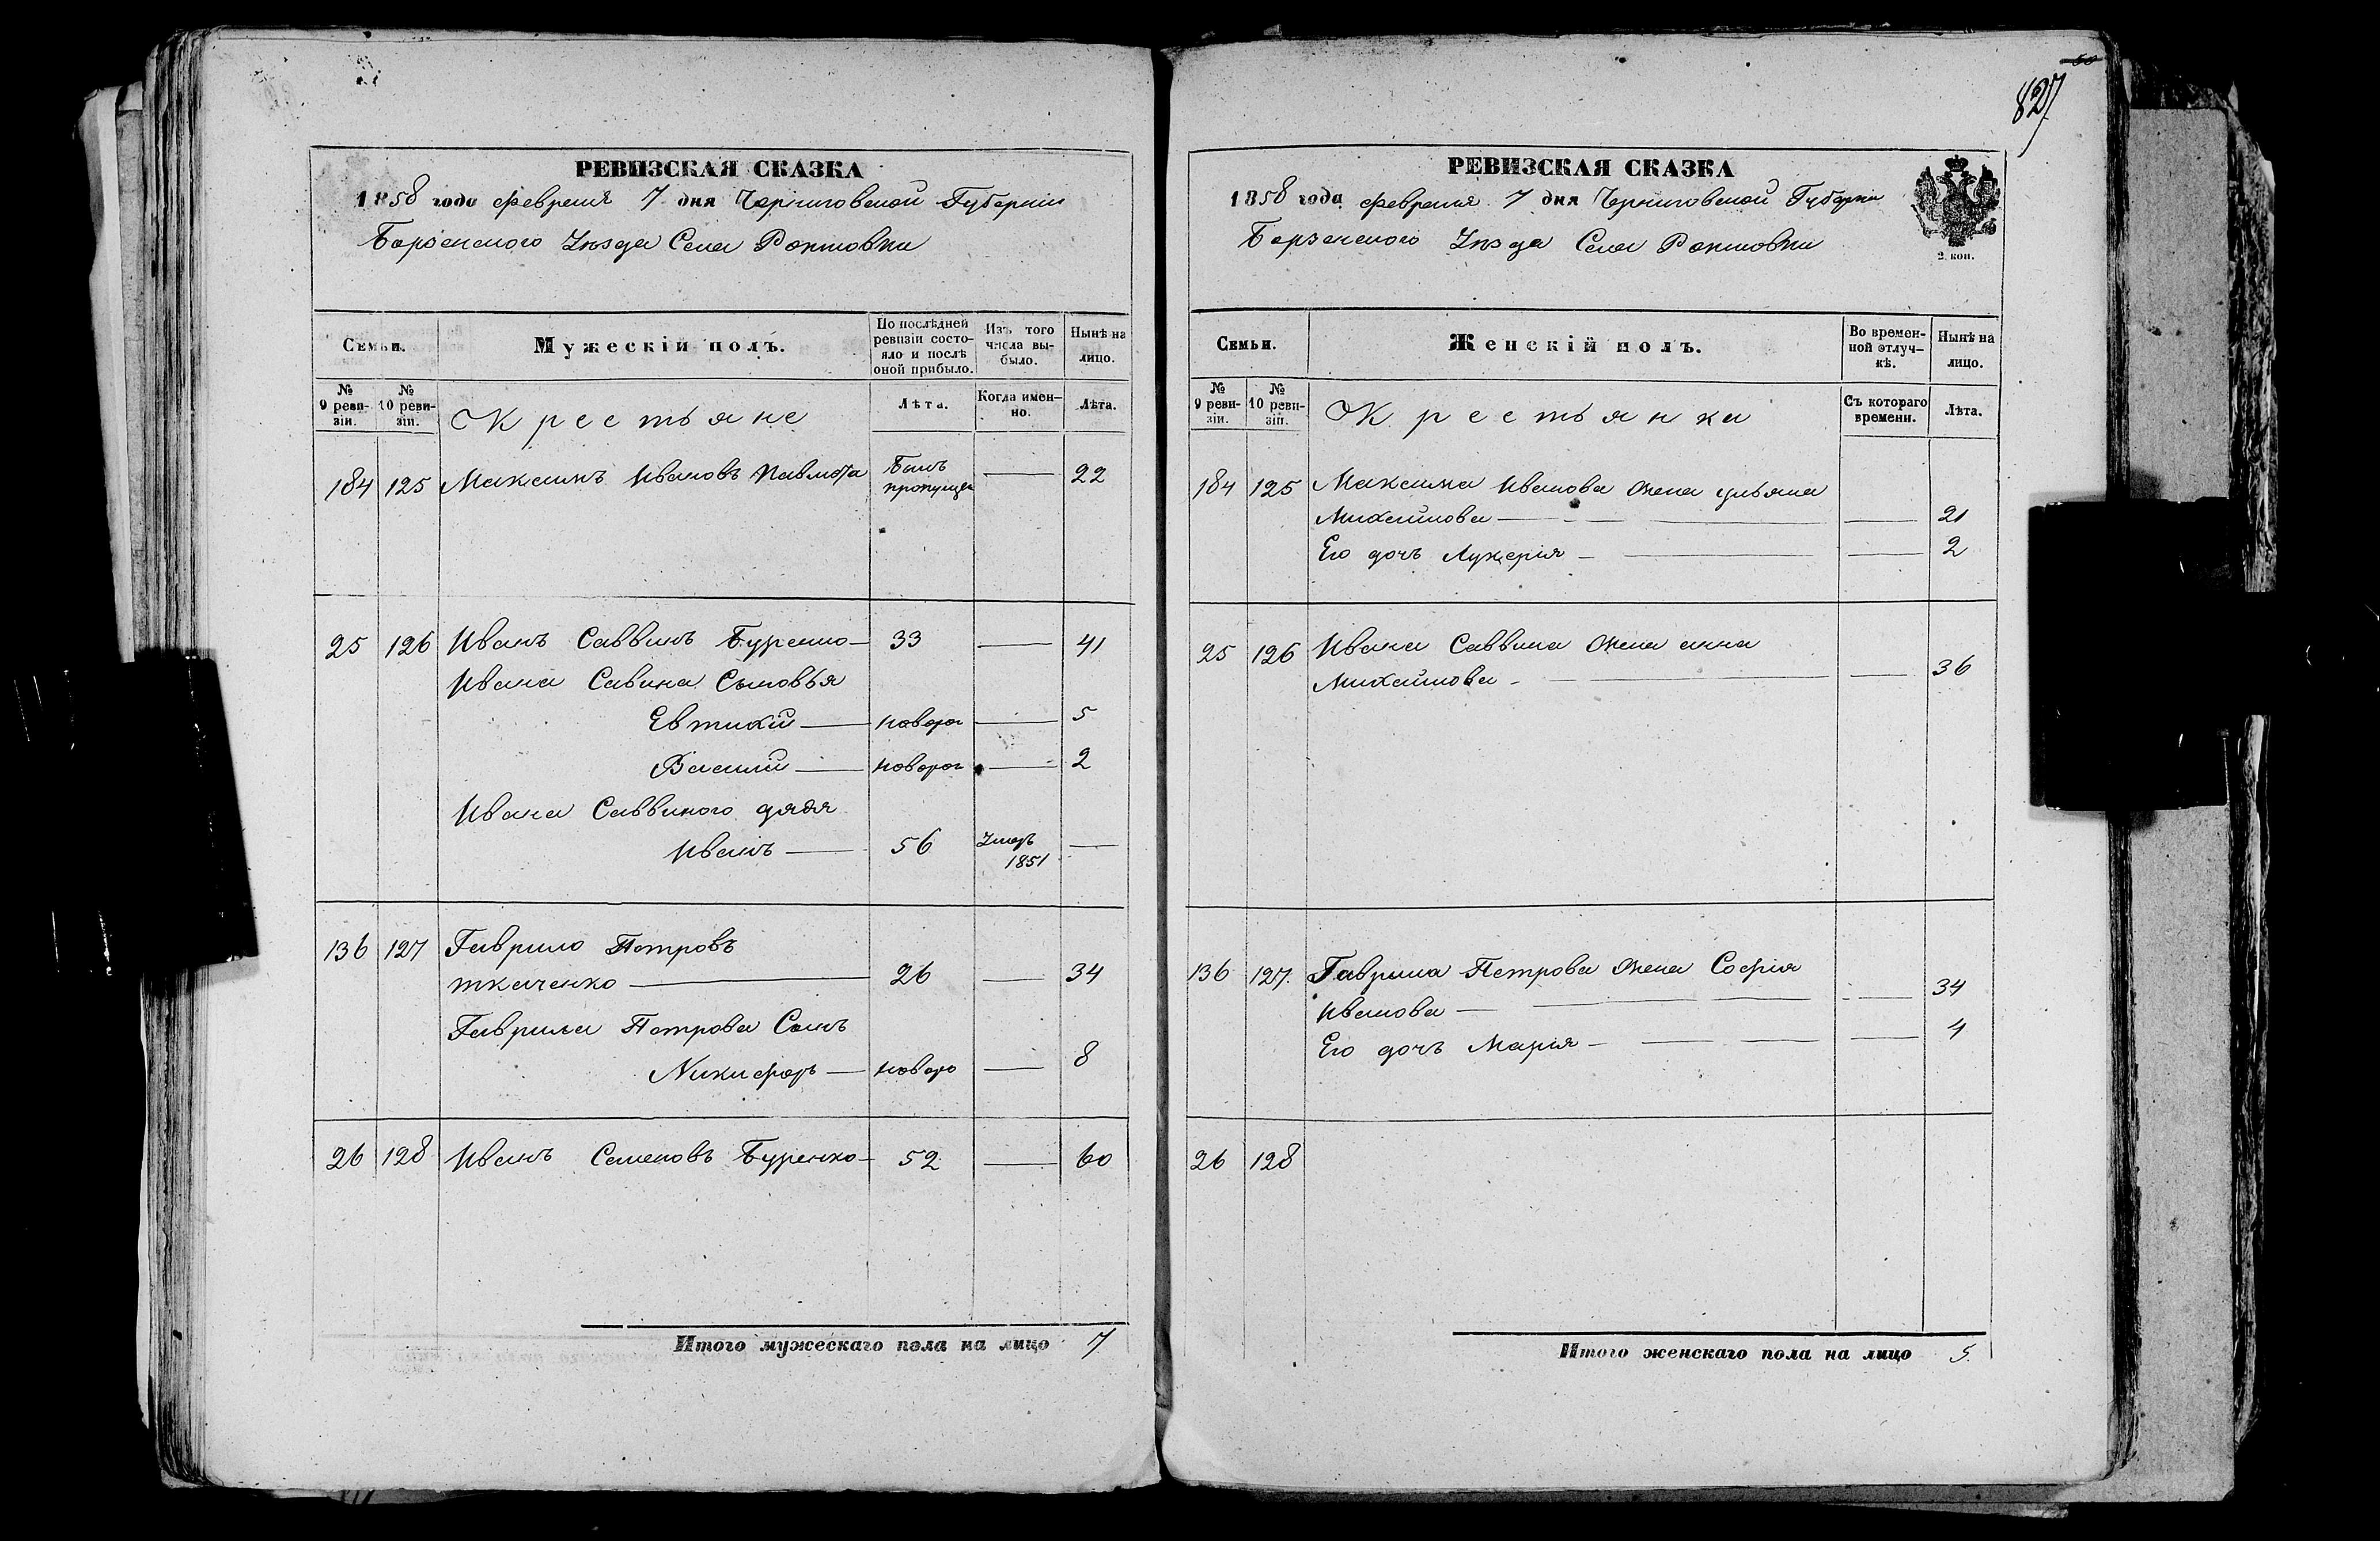 РЕВИЗСКАЯ СКАЗКА
1858 года февраля 7 дня Черниговской Губернии
Борзенского Уѣзда Села
Семьи.
Мужескій полъ.
По послѣдней ревизіи состо-
яло и послѣ оной прибыло.
Изъ того числа вы-
было.
Нынѣ на лицо.
№ 9 реви-
зіи.
№ 10 реви-
зіи.
Крестьяне
Лѣта.
Когда имен-
но.
Лѣта.
184 125 Максимъ Ивановъ Былъ — 22
25 126 Иванъ Саввинъ Буренко — 33 — 41
Ивана Савина Сыновья
Евтихій — новоро — 5
Василий — новорог — 2
Ивана Саввиного дядя
Иванъ — 56 Умеръ —
1851
136 127 Гаврило Петровъ
ткаченко — 26 — 34
Гаврила Петрова Сынъ
Никифоръ — новоро — 8
26 128 Иванъ Семеновъ Буренко — 52 — 60
Итого мужескаго пола на лицо 7
827
РЕВИЗСКАЯ СКАЗКА
1858 года февраля 7 дня Черниговской Губерни
Борзенского Уѣзда Села
2 коп.
Семьи.
Женскій полъ.
Во времен-
ной отлуч-
кѣ.
Нынѣ на лицо.
№ 9 реви-
зіи.
№ 10 реви-
зіи.
Крестьянки
Съ котораго времени.
Лѣта.
184 125 Максима Иванова жена ульяна
Михайлова — — 21
Его дочъ Лукерія — — 2
25 126 Ивана Саввина жена анна
Михайлова — — 36
136 127. Гаврила Петрова жена Софія
Иванова — — 34
Его дочъ Марія — — 4
26 128
Итого женскаго пола на лицо 5.